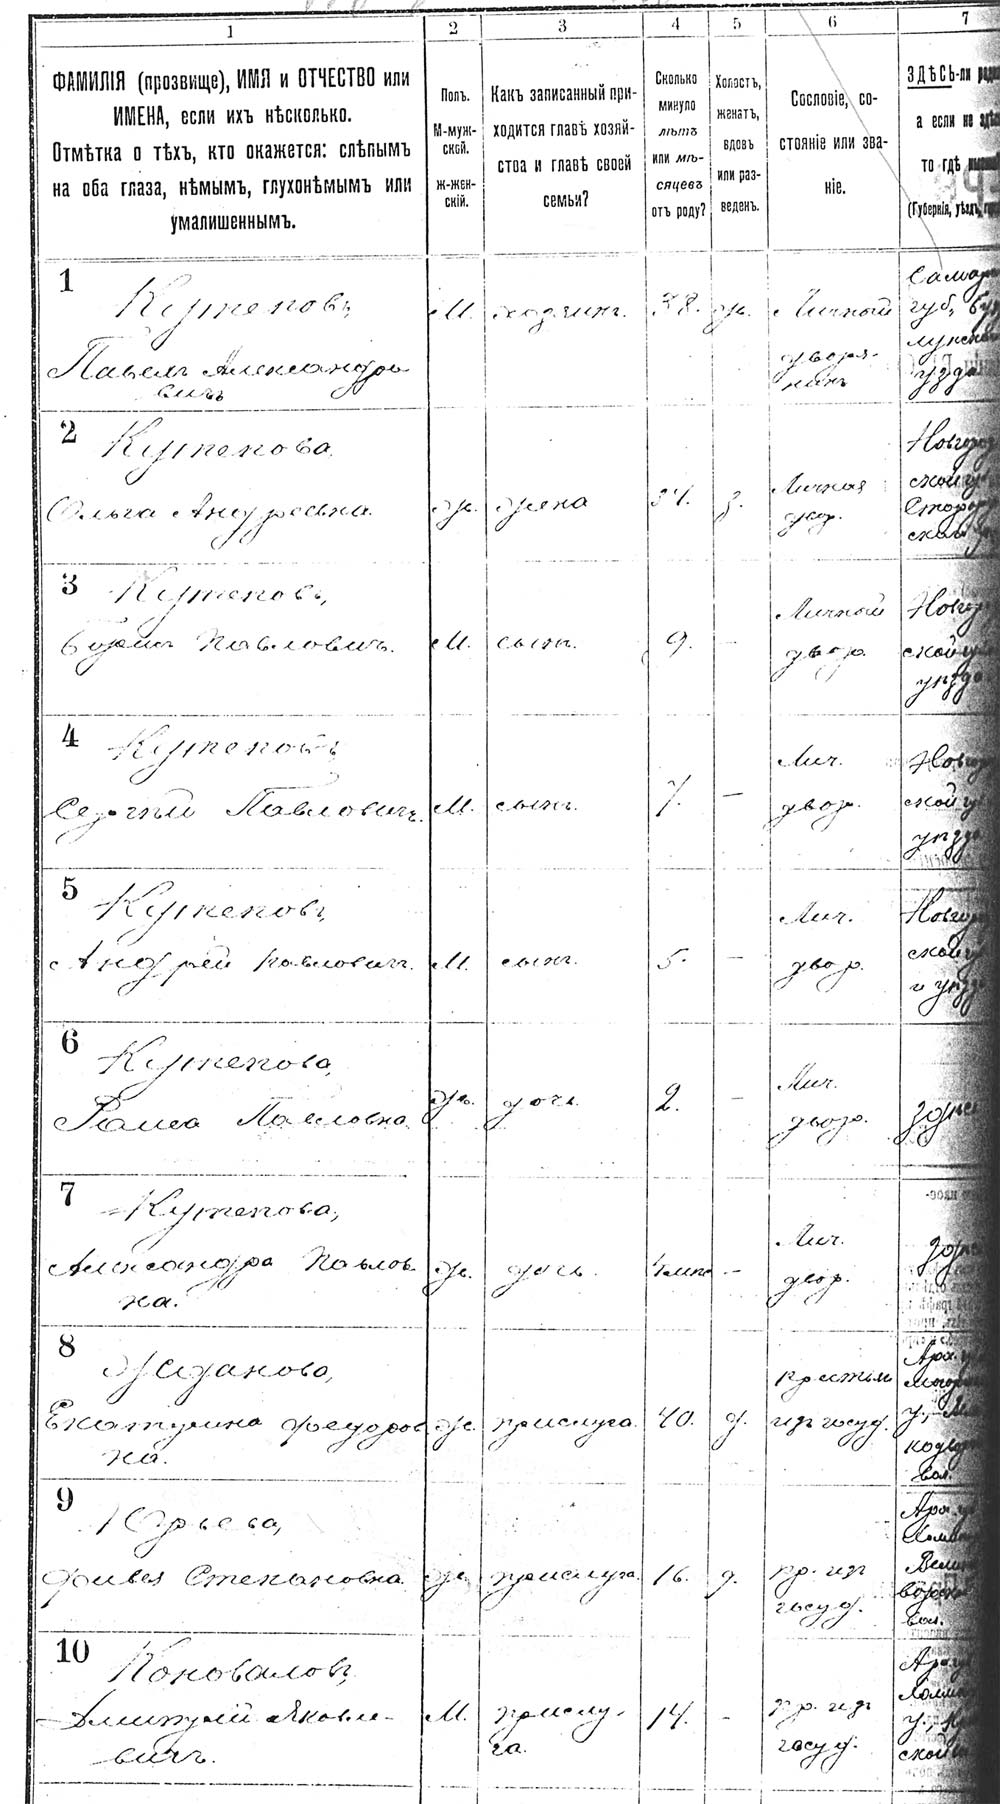 1 2 3 4 5 6 7
ФАМИЛІЯ (прозвище), ИМЯ и ОТЧЕСТВО или
ИМЕНА, если ихъ нѣсколько.
Отмѣтка о тѣхъ, кто окажется: слѣпымъ
на оба глаза, нѣмымъ, глухонѣмымъ или
умалишеннымъ.
Полъ.
М-муж-
ской.
ж-жен-
скій.
Какъ записанный при-
ходится главѣ хозяй-
ства и главѣ своей
семьи?
Сколько
минуло
лѣтъ
или мѣ-
сяцевъ
отъ роду?
Холостъ,
женатъ,
вдовъ
или раз-
веденъ.
Сословіе, со-
стояніе или зва-
ніе.
ЗДѢСЬ-ли
а если не
то гдѣ
(Губернія, уѣздъ,
1
Кутеповъ,
Павелъ Александро-
вичъ
М.
хозяинъ.
38.
ж.
Личный
дворя-
нинъ
губ.,
2
Кутепова,
Ольга Андреевна
ж.
жена
34.
з.
Личная
двор.
3
Кутеповъ,
Борисъ Павловичъ.
М.
сынъ.
9.
-
Личный
двор.
4
Кутеповъ,
Сергѣй Павловичъ.
М.
сынъ.
7.
-
Лич.
двор.
5
Кутеповъ,
Андрей Павловичъ.
М.
сынъ.
5.
-
Лич.
двор.
6
Кутепова,
Раиса Павловна
ж.
дочь.
2.
-
Лич.
двор.
7
Кутепова,
Александра Павлов-
на.
ж.
дочь.
-
Лич.
двор.
8
Жданова,
Екатерина Федоров
на.
ж.
прислуга
40.
д.
изъ госуд.
вол.
9
Юрьева,
Фивея Степановна
ж.
прислуга
16.
д.
кр. изъ
госуд.
вол.
10
Коноваловъ,
Дмитрій Яковле-
вичъ.
М.
прислу-
га.
14.
-
кр. изъ
госуд.